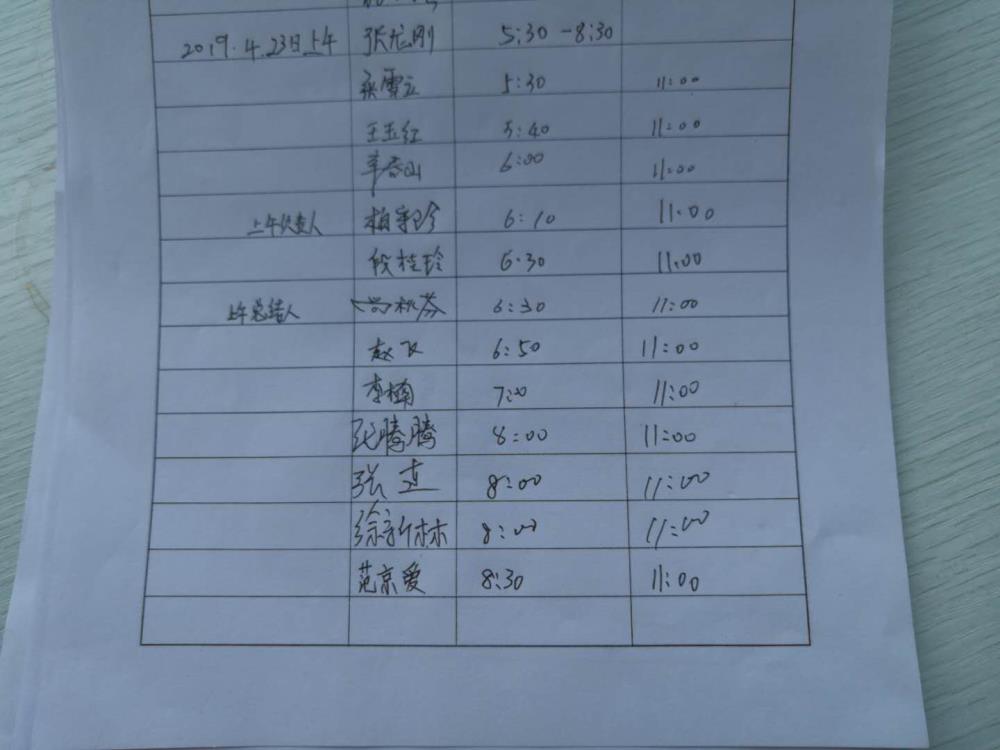 2019.4.23日上午 张龙刚 5:30-8:30
5:30 11:00
王玉红 5:40 11:00
辛春山 6:00 11:00
上午负责人 柏宇珍 6:10 11:00
段桂玲 6:30 11:00
上午总结人 尚秋芬 6:30 11:00
赵飞 6:50 11:00
李楠 7:00 11:00
张腾腾 8:00 11:00
张连 8:00 11:00
徐新林 8:00 11:00
范京爱 8:30 11:00